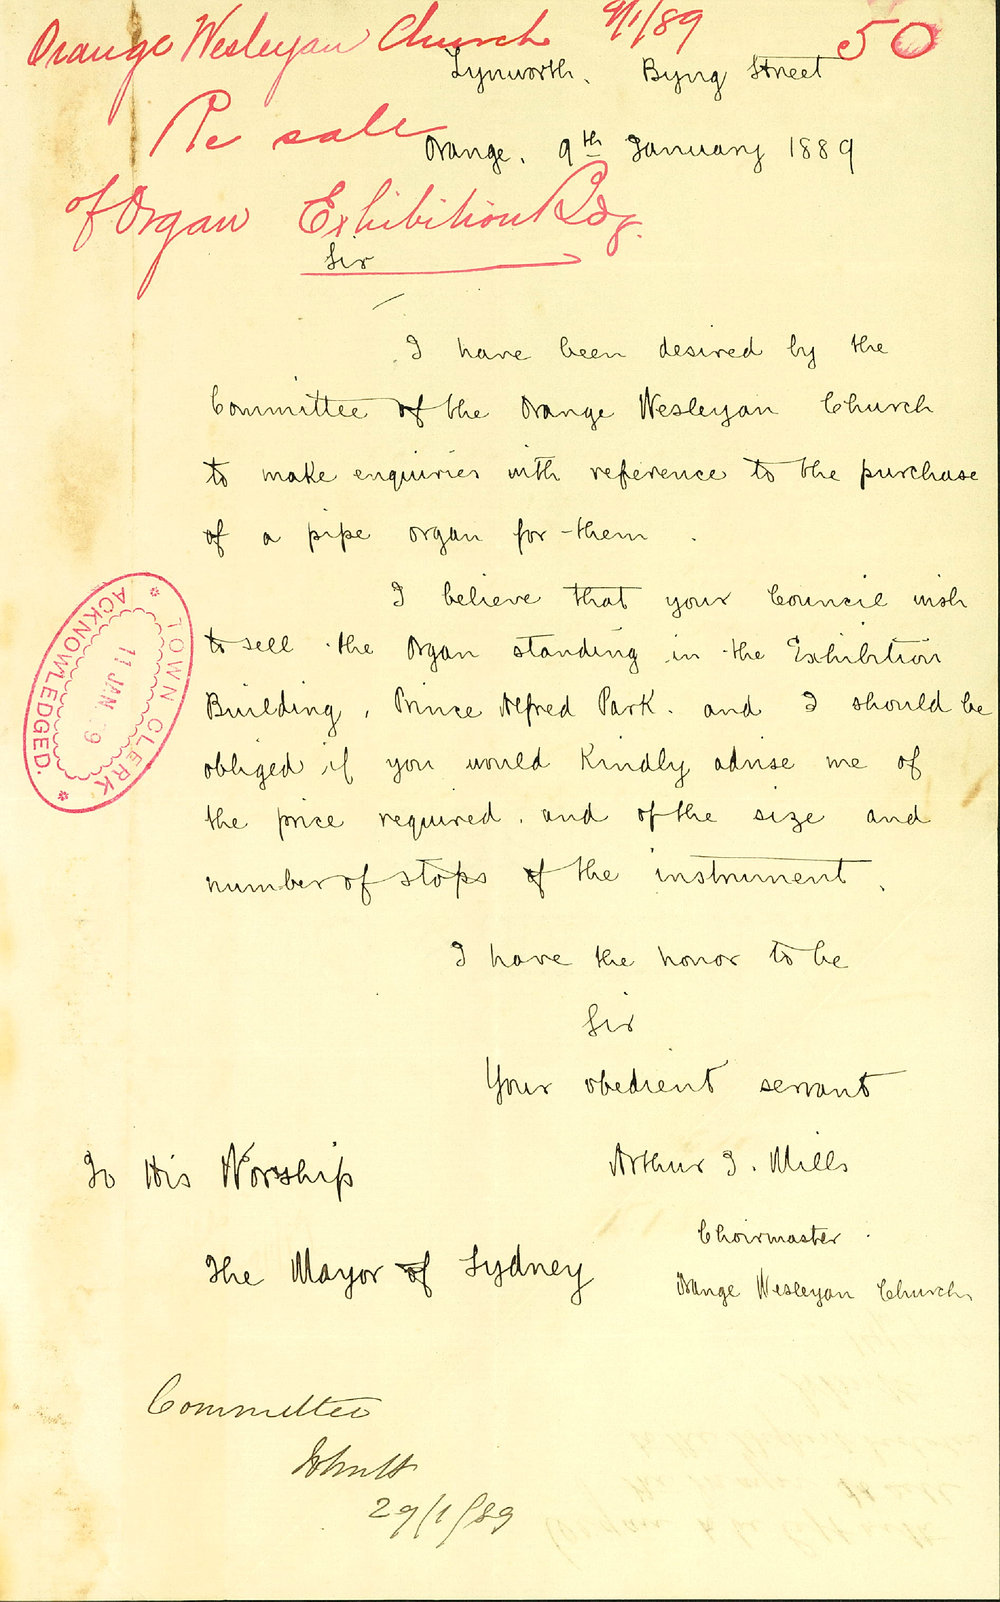 Orange Wesleyan Church 9/1/89
50
Lynworth. Byng Street
Re sale
Orange. 9th January 1889
of Organ Exhibition Bdg.
Sir
I have been desired by the
Committee of the Orange Wesleyan Church
to make enquiries with reference to the purchase
of a pipe organ for them.
I believe that your Council wish
to sell the Organ standing in the Exhibition
Building, Prince Alfred Park. and I should be
obliged if you would kindly advise me of
the price required. and of the size and
number of stops of the instrument.
TOWN CLERK
11 JAN. 9
ACKNOWLEDGED.
I have the honor to be
Sir
Your obedient servant
Arthur J. Mills
Choirmaster.
Orange Wesleyan Church
To His Worship
The Mayor of Sydney
Committee
29/1/89